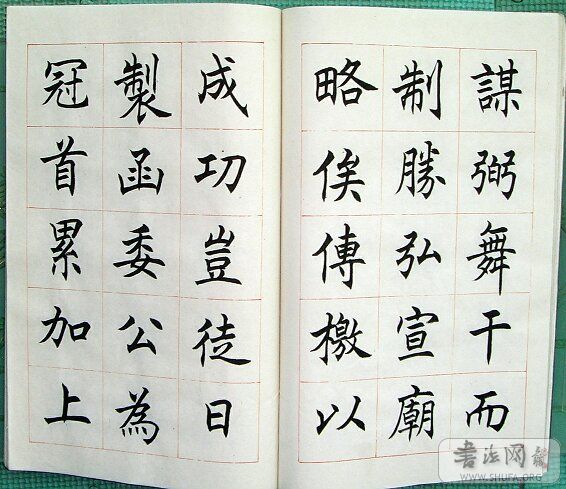 謀弼舞干而
制勝弘宣廟
略俟傳檄以
成功豈徒日
製函委公為
冠首累加上
書法网
WWW.SHUFA.ORG